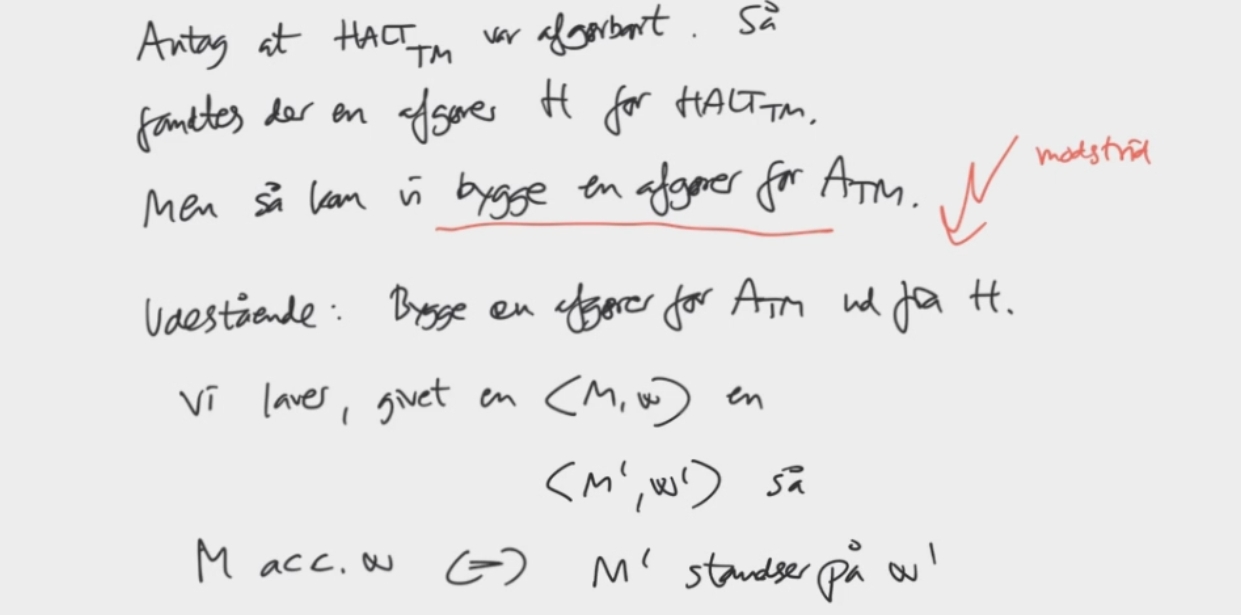 Antag at HALT_TM var afgørbart. Så
fandtes der en afgører H for HALT_TM.
modstrid
Men så kan vi bygge en afgører for A_TM.
Udestående: Bygge en afgører for A_TM ud fra H.
Vi laver, givet en ⟨M, w⟩ en
⟨M', w'⟩ så
M acc. w ⟺ M' standser på w'